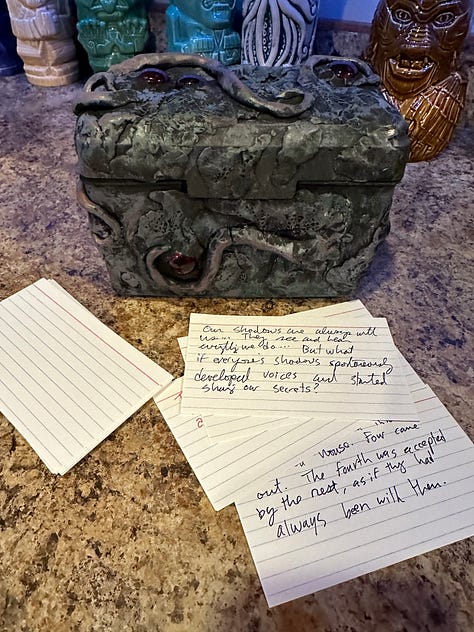 Our shadows are always with
us... They see and hear
everything we do... But what
if everyone's shadows spontaneously
developed voices and started
sharing our secrets?
a house. Four came
out. The fourth was accepted
by the rest, as if they had
always been with them.